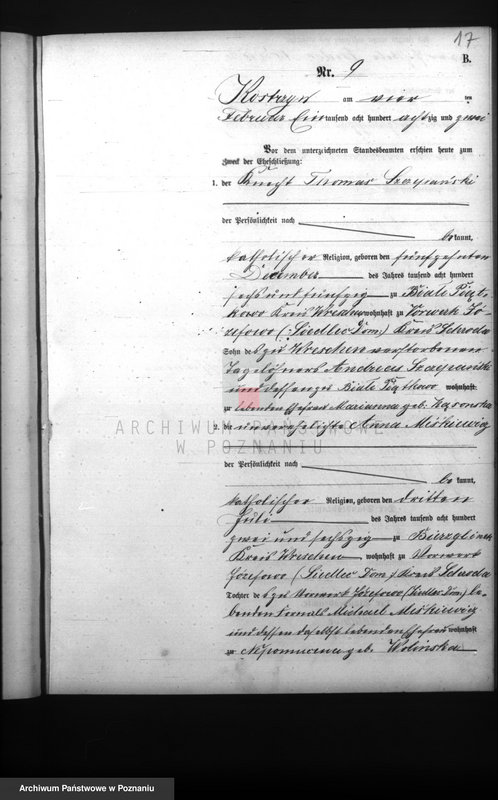 17
B.
Nr. 9
Kostrzyn am vier ten
Februar Ein tausend acht hundert achtzig und zwei
Vor dem unterzeichneten Standesbeamten erschien heute zum
Zweck der Eheschließung:
1. der Knecht Thomas
der Persönlichkeit nach
be kannt,
katholischer Religion, geboren den fünfzehnten
December des Jahres tausend acht hundert
sechs und fünfzig zu Biale Piąt-
kowo Kreis Wreschen wohnhaft zu Vorwerk Jó-
zefowo (: Siedlec Dom:) Kreis Schroda
Sohn des zu Wreschen verstorbenen
Tagelöhners Andreas
und dessen zu Biale Piątkowo wohnhaft
zu lebenden Ehefrau Marianna geb.
ARCHIWUM PAŃSTWOWE
W POZNANIU
2. die unverehelichte Anna Miśkiewicz
der Persönlichkeit nach
be kannt,
katholischer Religion, geboren den dritten
Juli des Jahres tausend acht hundert
zwei und sechszig zu Bierzglinek
Kreis Wreschen wohnhaft zu Vorwerk
Józefowo (Siedlec Dom.) Kreis Schroda
Tochter des zu Vorwerk Józefowo (Siedlec Dom.) le-
benden Fornals Michael Miśkiewicz
und dessen daselbst lebenden Ehefrau wohnhaft
zu Nepomucena geb. Wolinska
Archiwum Państwowe w Poznaniu